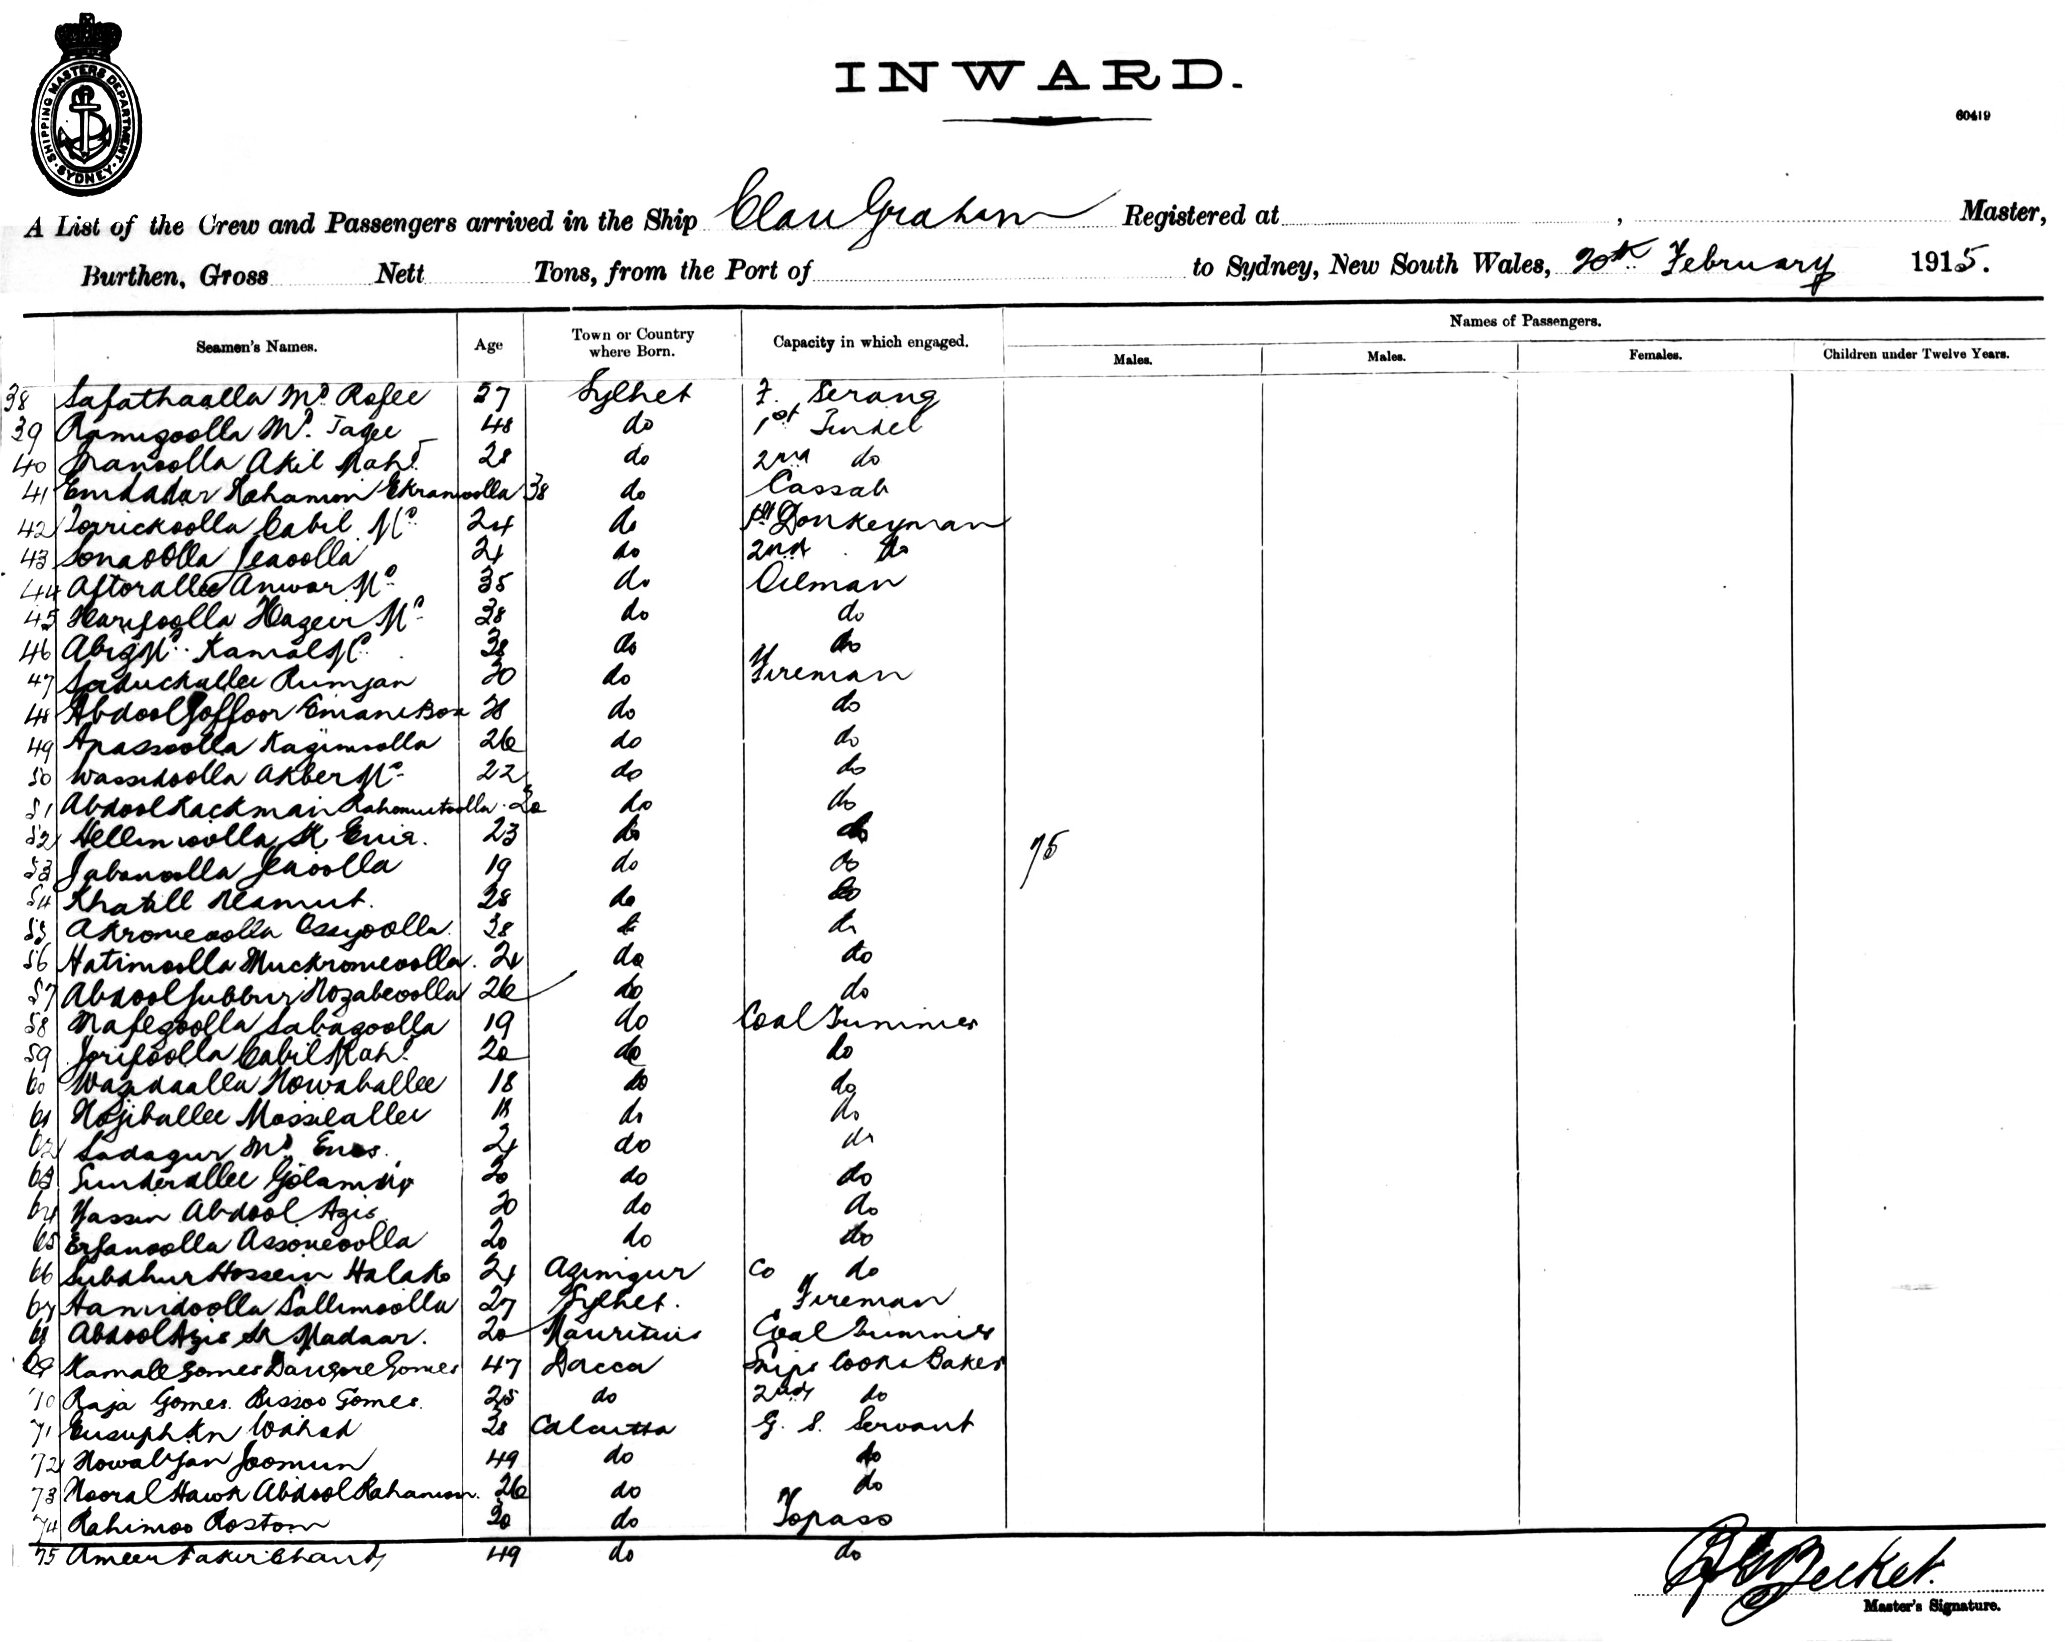 SHIPPING MASTERS DEPARTMENT SYDNEY
INWARD.
60419
A List of the Crew and Passengers arrived in the Ship Clan Graham Registered at , Master,
Burthen, Gross Nett Tons, from the Port of to Sydney, New South Wales, 20th February 1915.
Seamen's Names. Age Town or Country where Born. Capacity in which engaged. Names of Passengers.
Males. Males. Females. Children under Twelve Years.
38 Safathaalla Md Rofee 37 Sylhet F. Serang
39 Md. 48 do 1st Tindel
40 Akil Mahd 28 do 2nd do
41 Emdadar Rahamon Ekramoolla 38 do Cassab
42 Torrickoolla Cabil Md 24 do 1st Donkeyman
43 Sonaoolla Jeaoolla 24 do 2nd do
44 Aftorallee Anwar Md 35 do Oilman
45 Harifoolla Hageir Md 38 do do
46 Abig Md Kamal Md 38 do do
47 Saduckullee Rumjan 30 do Fireman
48 Abdool Goffoor Emani Box 38 do do
49 Apassoolla Kagimoolla 26 do do
50 Wassidoolla Akber Md 22 do do
51 Abdool Rackman Rahomutoolla 30 do do
52 Hellimoolla Sk Enir. 23 do do
53 Jabanoolla Jeaoolla 19 do do
75
54 Khatill Neamut. 28 do do
55 Akromeoolla Ossyoolla. 38 do do
56 Hatimoolla Muckromeoolla. 24 do do
57 Abdool Jubbur Nozabeoolla 26 do do
58 Nafegoolla Sabagoolla 19 do Coal Trimmer
59 Jorifoolla Cabil Mahd 20 do do
60 Wazdaalla Nowaballee 18 do do
61 Nojiballee Mossilallee 18 do do
62 Sadagur Md Enos. 24 do do
63 Sunderallee 20 do do
64 Yassin Abdool Azis 30 do do
65 Erfanoolla Assoneoolla 20 do do
66 Subdhur Hossein Halako 24 Azimigur Co do
67 Hamidoolla Sallimoolla 27 Sylhet. Fireman
68 Abdool Azis Sk Madaar. 20 Mauritius Coal Trimmer
69 Kamale Gomes Gomes 47 Dacca Ships Cook & Baker
70 Raja Gomes. Bissoo Gomes. 25 do 2nd do
71 Eusuph Kn Wahad 38 Calcutta G. S. Servant
72 Nowab Jan Joomun 49 do do
73 Nooral Hawk Abdool Rahamon. 26 do do
74 Rahimoo Rostom 30 do Topass
75 Ameer Fakir Chand 49 do do
Master's Signature.